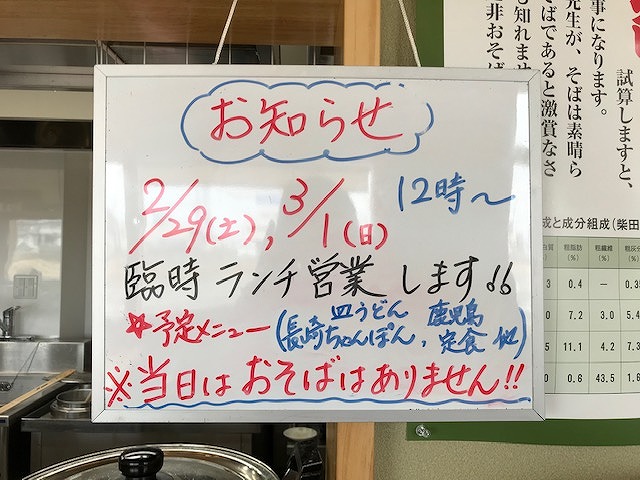 お知らせ
2/29(土), 3/1(日) 12時〜
臨時 ランチ営業 します!!
☆予定メニュー (長崎ちゃんぽん, 皿うどん 鹿児島定食 他)
※当日は おそばはありません!!
試算しますと、
事になります。
先生が、そばは素晴ら
そばであると激賞なさ
も知れませ
非おそば
成と成分組成(柴田
粗脂肪(%) 粗繊維(%) 粗灰分
3 0.4 — 0.35
0 7.2 3.0 5.4
5 11.1 4.2 7.3
0 0.6 43.5 1.6